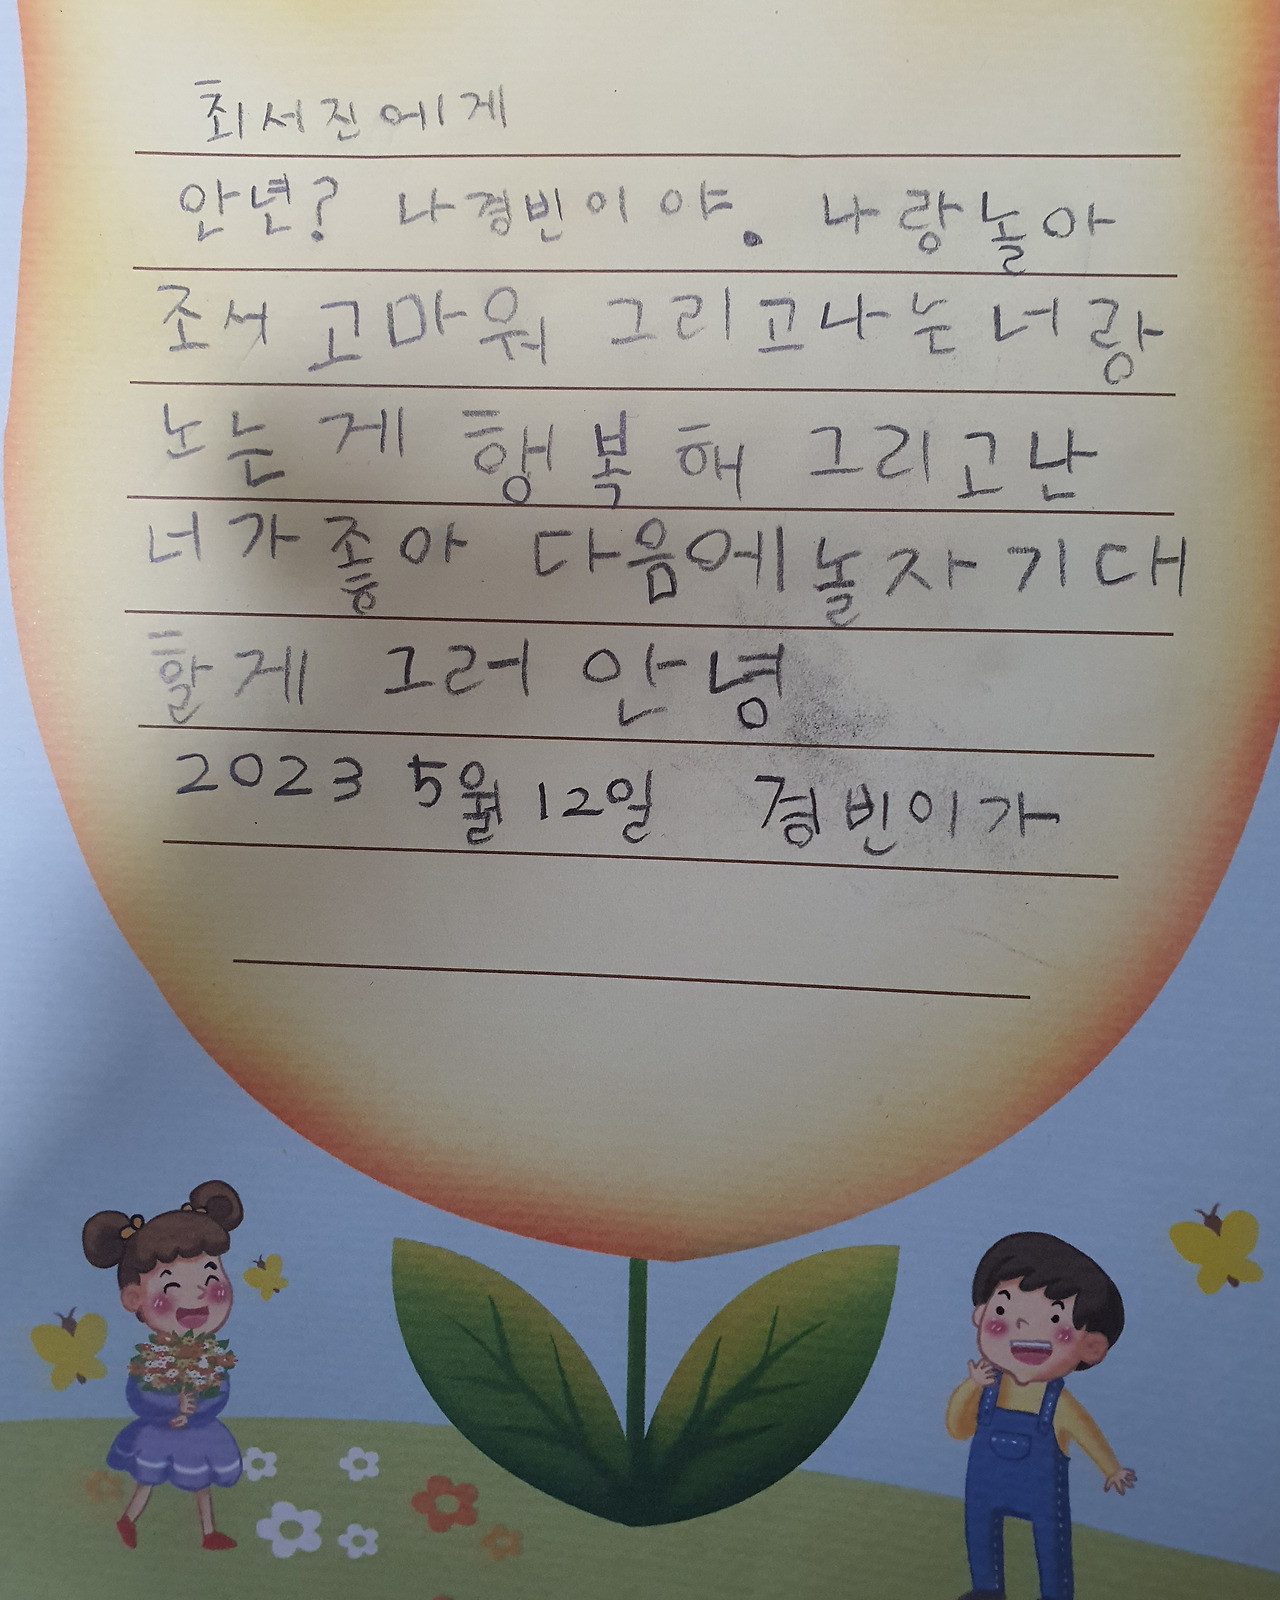 최서진에게
안년? 나경빈이야. 나랑놀아
조서 고마워 그리고나는너랑
노는게 행복해 그리고난
너가좋아 다음에놀자기대
할게 그러 안녕
2023 5월12일 경빈이가